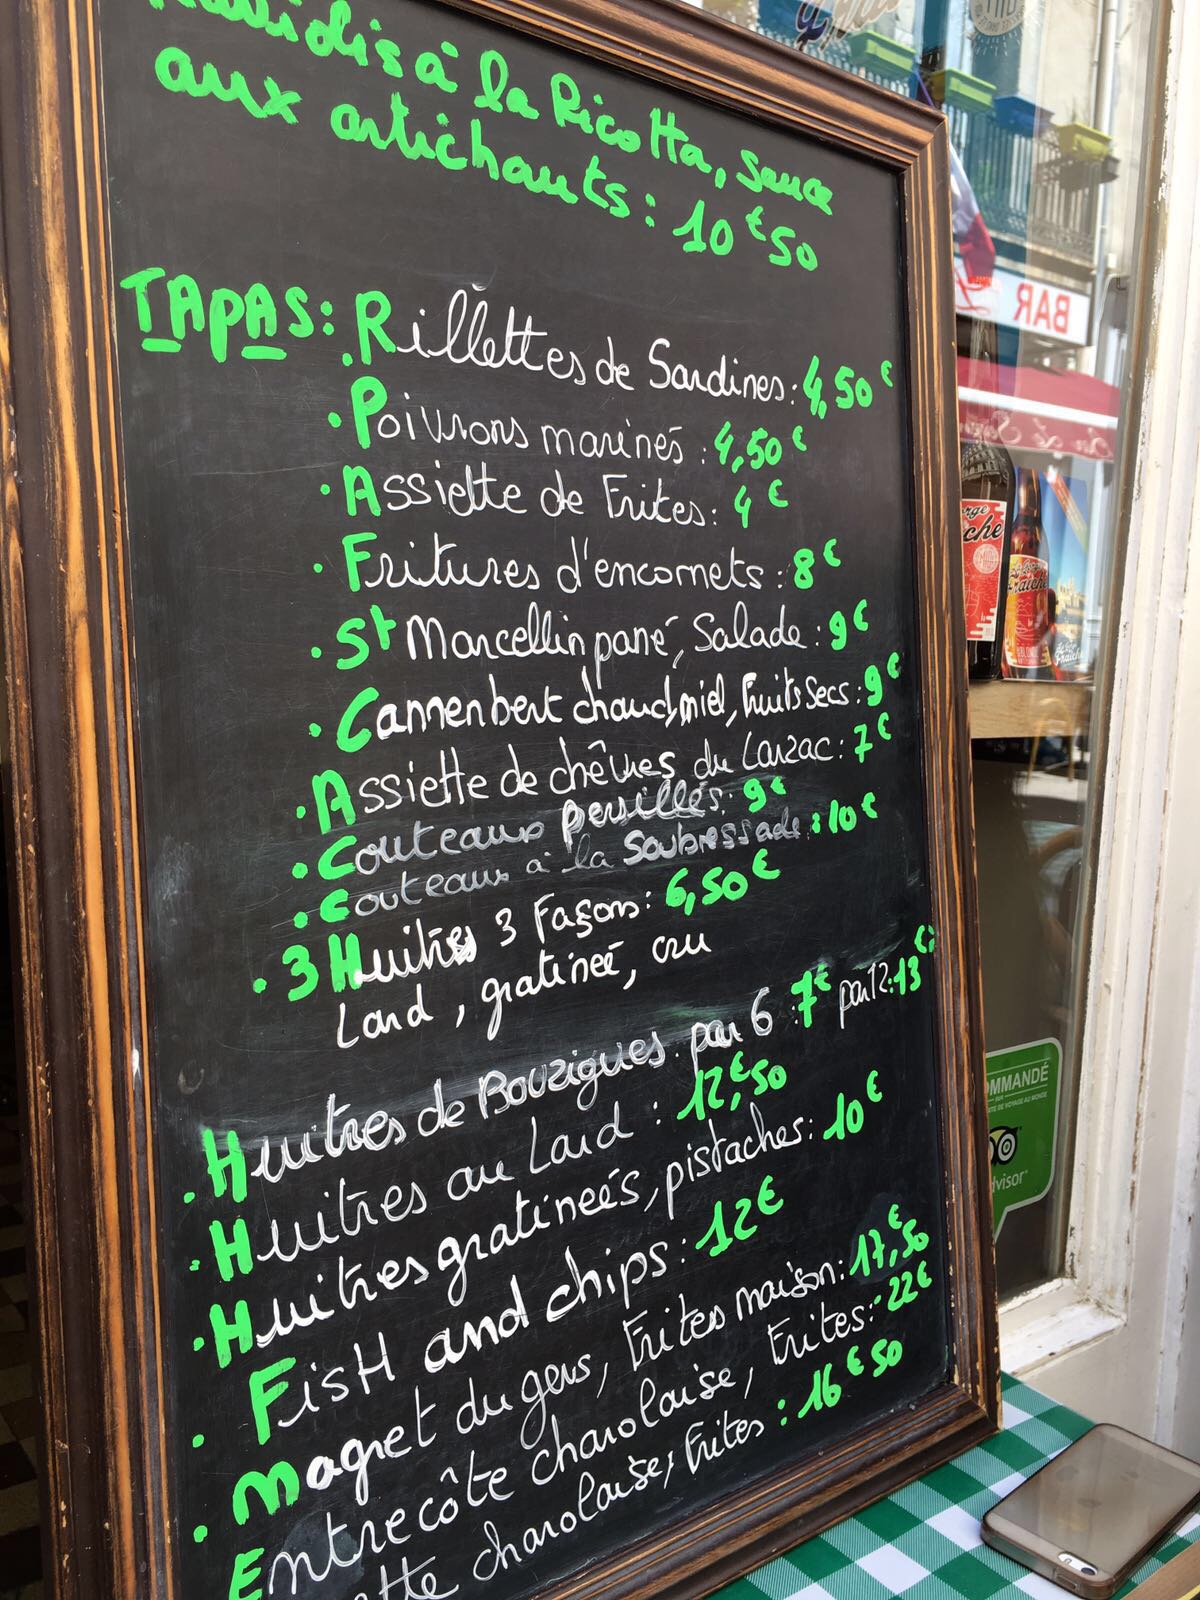 à la Ricotta, sauce
aux artichauts : 10€50
TAPAS : . Rillettes de Sardines : 4,50€
. Poivrons marinés : 4,50€
. Assiette de Frites : 4€
. Fritures d'encornets : 8€
. St Marcellin pané, Salade : 9€
. Camenbert chaud, miel, Fruits Secs : 9€
. Assiette de chêvres du Larzac : 7€
. Couteaux persillés : 9€
. Couteaux à la Soubressade : 10€
. 3 Huitres 3 Façons : 6,50€
Lard, gratineé, cru
. Huitres de Bouzigues par 6 : 7€ par 12 : 13€
. Huitres au Lard : 12€,50
. Huitres gratineés, pistaches : 10€
. Fish and chips : 12€
. Magret du gers, Frites maison : 17,€50
Entrecôte charolaise, Frites : 22€
charolaise, Frites : 16€50
BAR
OMMANDÉ
SUR
TE DE VOYAGE AU MONDE
dvisor
rge
che
Fraîche
BLONDE